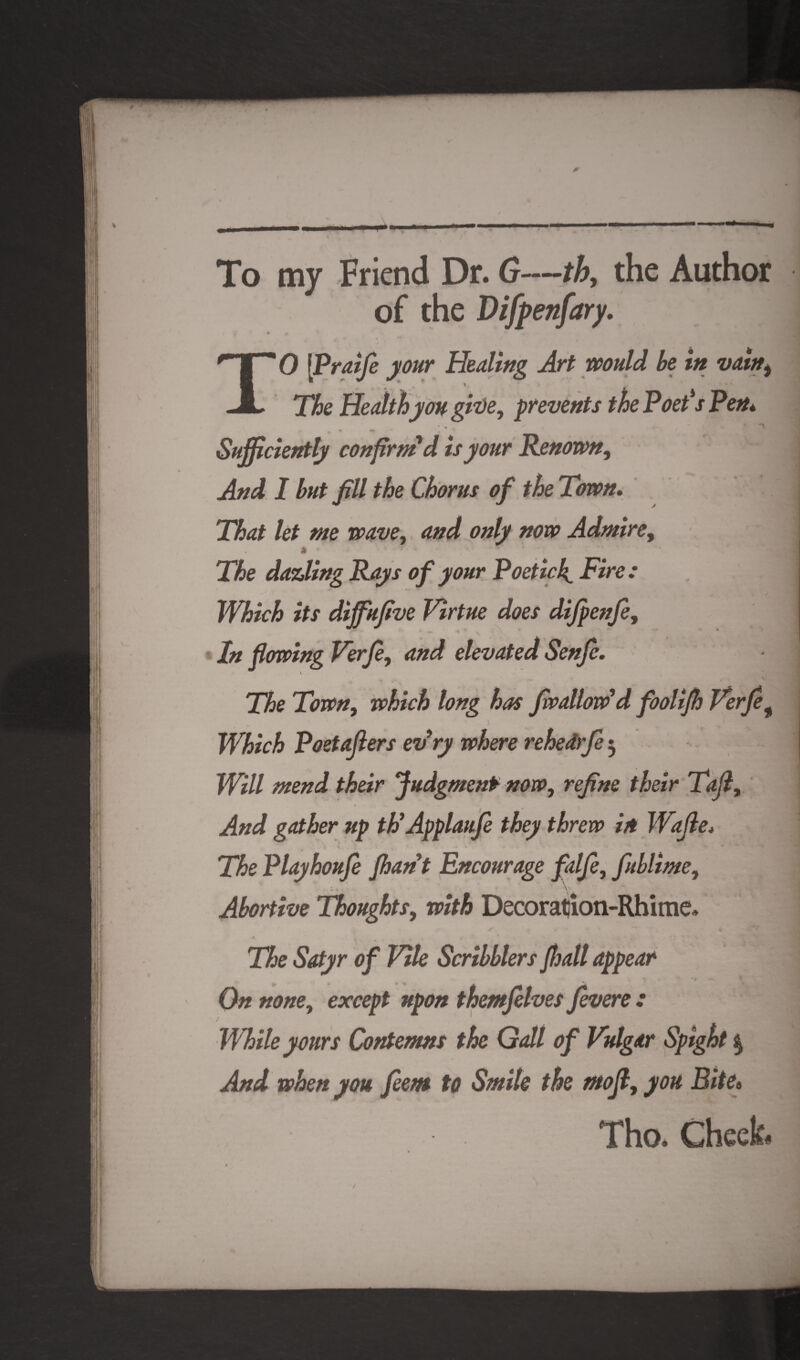 To my Friend Dr. G——th, the Author
of the Diſpenſary.
TO [Praiſe your Healing Art would be in vain,
The Health you give, prevents the Poet's Pen.
Sufficiently confirm'd is your Renown,
And I but fill the Chorus of the Town.
That let me wave, and only now Admire,
The dazling Rays of your Poetick Fire:
Which its diffuſive Virtue does diſpenſe,
In flowing Verſe, and elevated Senſe.
The Town, which long has ſwallow'd fooliſh Verſe,
Which Poetaſters ev'ry where rehearſe;
Will mend their Judgment now, refine their Taſt,
And gather up th' Applauſe they threw in Waſte.
The Playhouſe ſhan't Encourage falſe, ſublime,
Abortive Thoughts, with Decoration-Rhime.
The Satyr of Vile Scribblers ſhall appear
On none, except upon themſelves ſevere:
While yours Contemns the Gall of Vulgar Spight;
And when you ſeem to Smile the moſt, you Bite.
Tho. Cheek.